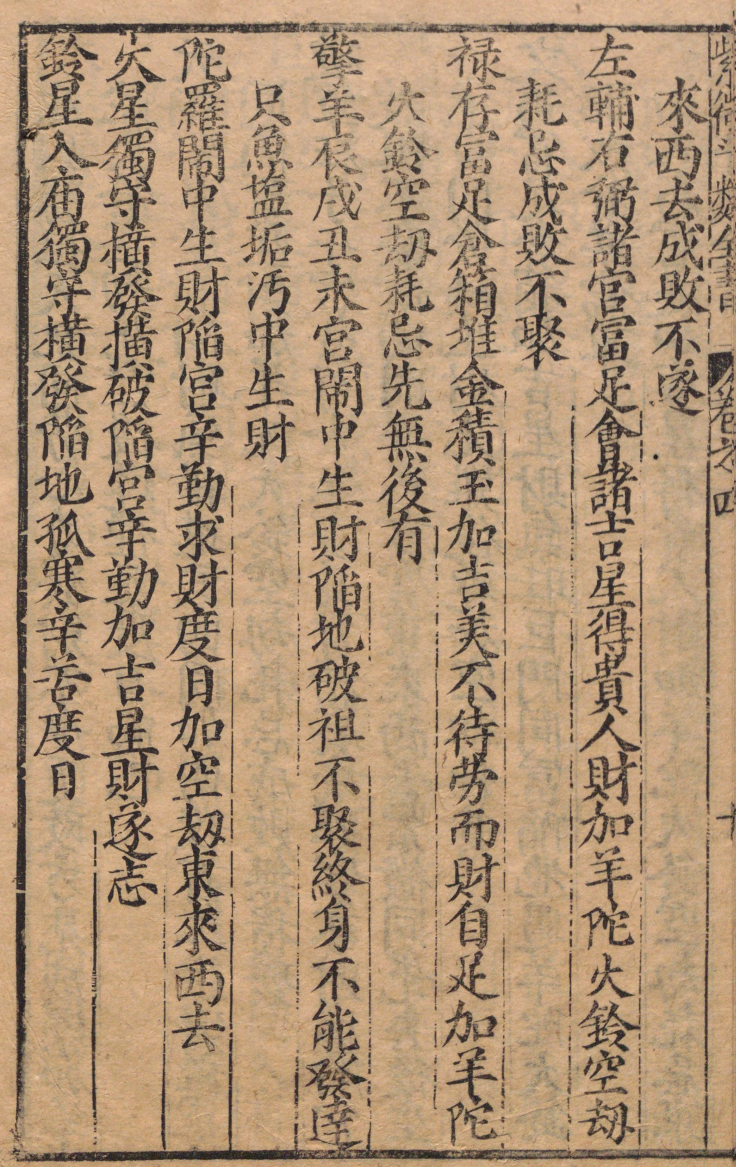 紫微斗數全書 卷之四
來西去成敗不遂
左輔右弼諸宮富足會諸吉星得貴人財加羊陀火鈴空刼
耗忌成敗不聚
禄存富足倉箱堆金積玉加吉美不待劳而財自足加羊陀
火鈴空刼耗忌先無後有
擎羊辰戌丑未宮閙中生財陷地破祖不聚終身不能發達
只魚塩垢污中生財
陀羅閙中生財陷宮辛勤求財度日加空刼東來西去
火星獨守橫發橫破陷宮辛勤加吉星財遂志
鈴星入庙獨守橫發陷地孤寒辛苦度日